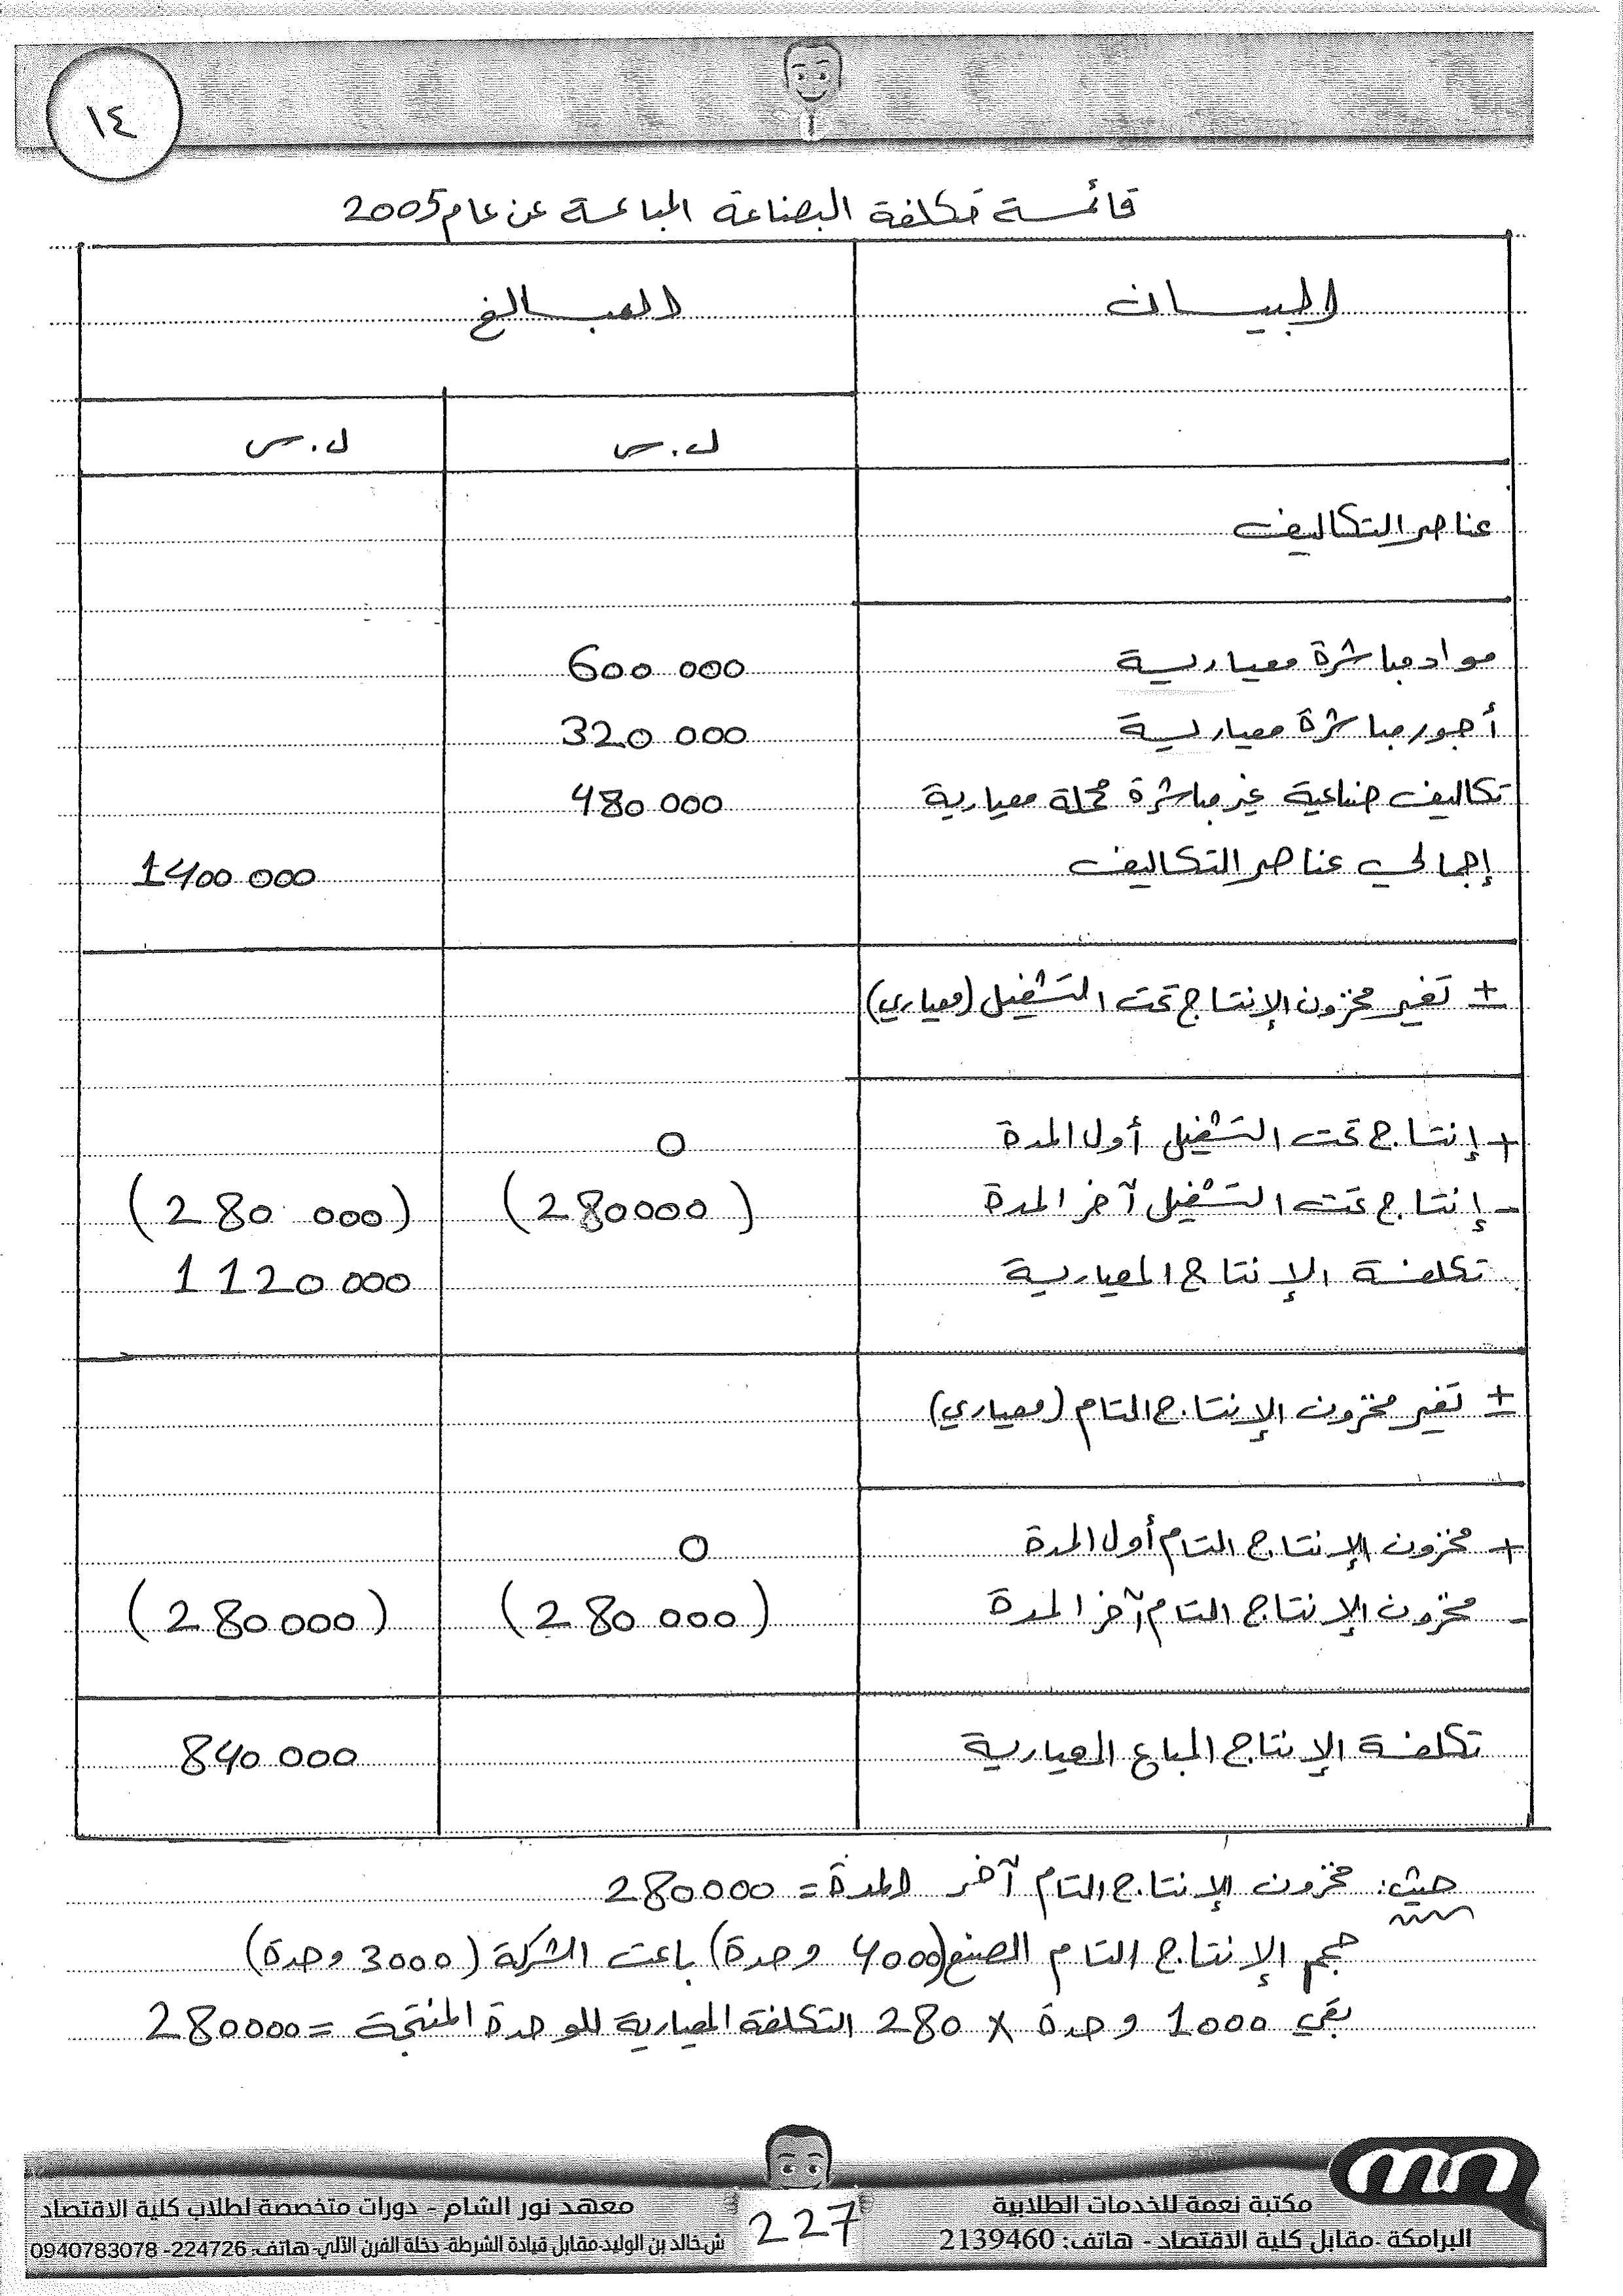 ١٤
قائمة تكلفة البضاعة المباعة عن عام 2005
البيان المبالغ
ل.س ل.س
عناصر التكاليف
مواد مباشرة معيارية 600 000
أجور مباشرة معيارية 320 000
تكاليف صناعية غير مباشرة محملة معيارية 480 000
إجمالي عناصر التكاليف 1400 000
± تغير مخزون الإنتاج تحت التشغيل (معياري)
+ إنتاج تحت التشغيل أول المدة 0
- إنتاج تحت التشغيل آخر المدة (280000) (280 000)
تكلفة الإنتاج المعيارية 1120 000
± تغير مخزون الإنتاج التام (معياري)
+ مخزون الإنتاج التام أول المدة 0
- مخزون الإنتاج التام آخر المدة (280 000) (280 000)
تكلفة الإنتاج المباع المعيارية 840 000
حيث: مخزون الإنتاج التام آخر المدة = 280000
حجم الإنتاج التام المصنع (4000 وحدة) باعت الشركة (3000 وحدة)
بقي 1000 وحدة × 280 التكلفة المعيارية للوحدة المنتجة = 280000
مكتبة نعمة للخدمات الطلابية
البرامكة - مقابل كلية الاقتصاد - هاتف: 2139460
227
معهد نور الشام - دورات متخصصة لطلاب كلية الاقتصاد
ش.خالد بن الوليد-مقابل قيادة الشرطة- دخلة الفرن الآلي-هاتف: 224726- 0940783078